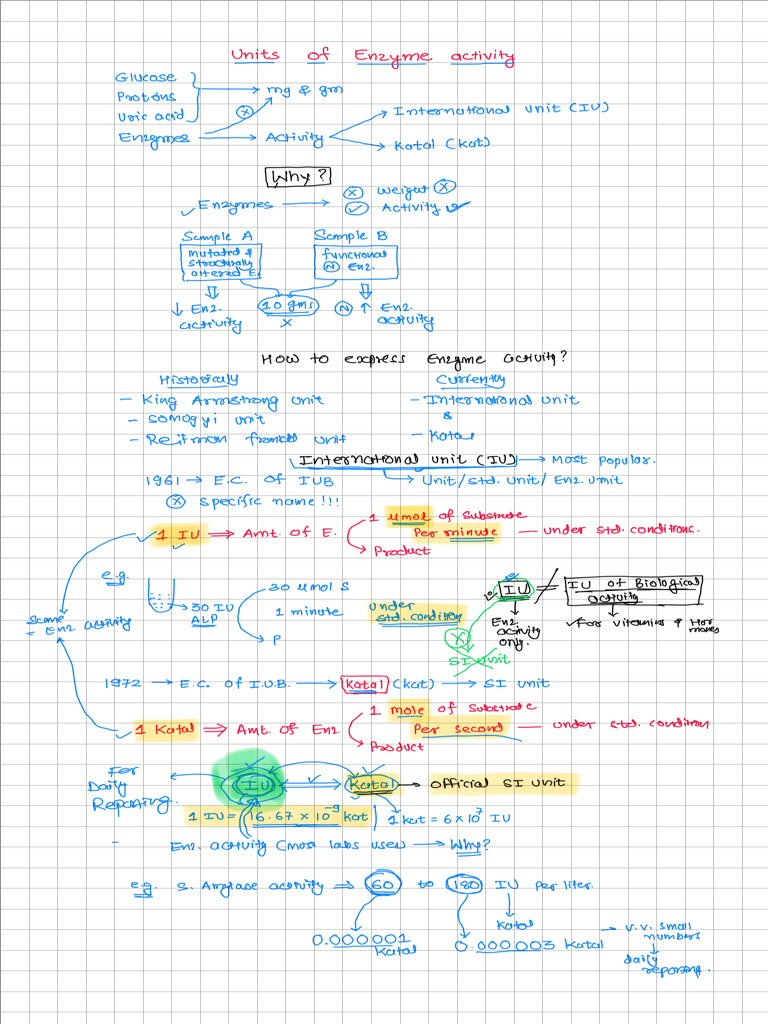 Units of Enzyme activity
Glucose
Protons
Uric acid
mg & gm
Enzymes → Activity
International unit (IU)
Katal (kat)
Why?
✓ Enzymes → ⓧ Weight ⓧ
✓ Activity ✓
Sample A
Sample B
mutated &
structurally
altered E.
functional
Ⓝ Enz.
↓ Enz.
activity
10 gms
X
Ⓝ ↑ Enz.
activity
How to express Enzyme activity?
Historicaly
Currently
- King Armstrong unit
- International unit
&
- Somogyi unit
- Reitman frankel unit
- Katal
International unit (IU) → Most popular.
1961 → E.C. of IUB
→ Unit/std. unit/ Enz. unit
ⓧ specific name !!!
✓ 1 IU ⇒ Amt. of E.
1 μmol of Substrate
Per minute — under std. conditions.
Product
e.g.
→ 30 IU
ALP
30 μmol S
1 minute
P
under
std. condition
IU ≠ IU of Biological
activity
Enz
activity
only.
✓ For vitamins & Hormones
X
SI unit
Same
= Enz. activity
1972 → E.C. of I.U.B. → Katal (kat) → SI unit
✓ 1 Katal ⇒ Amt. of Enz
1 mole of Substrate
Per second — under std. condition
Product
For
Daily
Reporting.
IU
Katal → official SI unit
1 IU = 16.67 × 10⁻⁹ kat
1 kat = 6 × 10⁷ IU
Enz. activity (most labs uses → Why?
e.g. S. Amylase activity ⇒ 60 to 180 IU per liter.
Katal
0.000001
Katal
0.000003 Katal
→ v.v. small
numbers
daily
reporting.